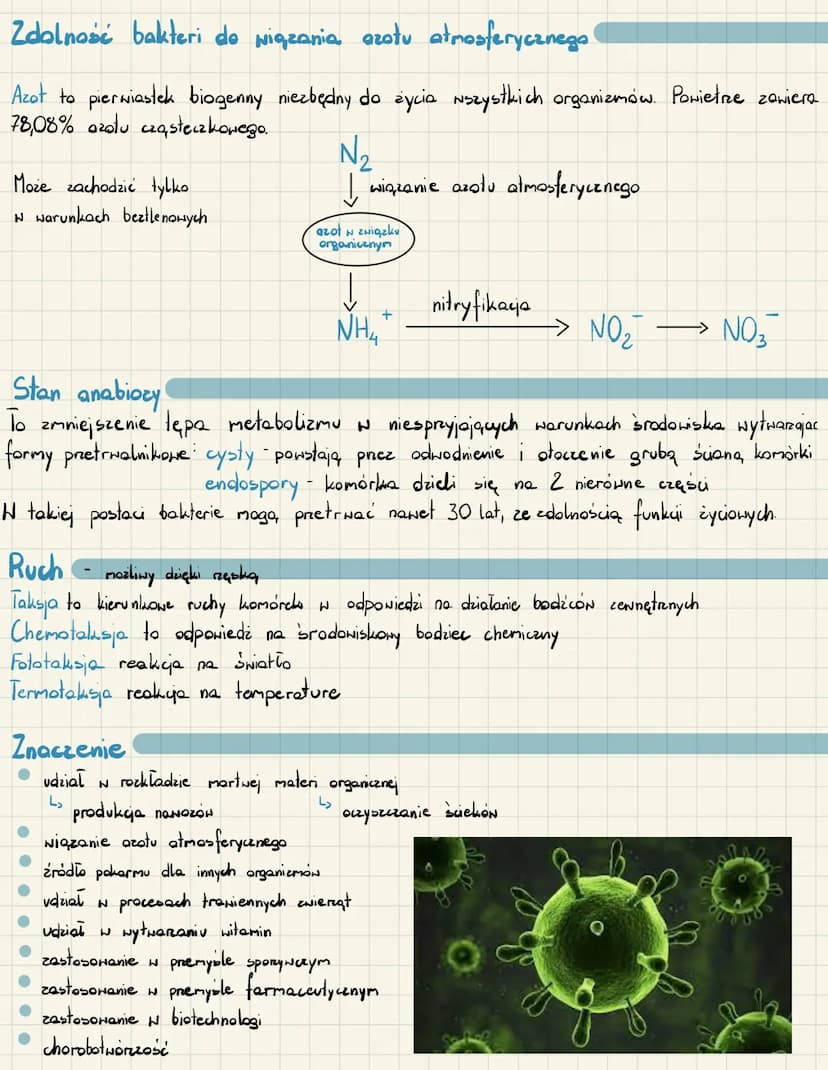 Zdolność bakteri do wiązania azotu atmosferycznego
Azot to pierwiastek biogenny niezbędny do życia wszystkich organizmów. Powietrze zawiera
78,08% azotu cząsteczkowego.
N₂
Może zachodzić tylko
w warunkach beztlenowych
↓ wiązanie azotu atmosferycznego
azot w związku
organicznym
↓
NH₄⁺ nitryfikacja → NO₂⁻ → NO₃⁻
Stan anabiozy
To zmniejszenie tępa metabolizmu w niesprzyjających warunkach środowiska wytwarzając
formy przetrwalnikowe: cysty - powstają przez odwodnienie i otoczenie grubą ścianą komórki
endospory - komórka dzieli się na 2 nierówne części
W takiej postaci bakterie mogą przetrwać nawet 30 lat, ze zdolnością funkcji życiowych.
Ruch - możliwy dzięki rzęską
Taksja to kierunkowe ruchy komórek w odpowiedzi na działanie bodźców zewnętrznych
Chemotaksja to odpowiedź na środowiskowy bodziec chemiczny
Fototaksja reakcja na światło
Termotaksja reakcja na temperature
Znaczenie
udział w rozkładzie martwej materi organicznej
↳ produkcja nawozów ↳ oczyszczanie ścieków
wiązanie azotu atmosferycznego
źródło pokarmu dla innych organizmów
udział w procesach trawiennych zwierząt
udział w wytwarzaniu witamin
zastosowanie w przemyśle spożywczym
zastosowanie w przemyśle farmaceutycznym
zastosowanie w biotechnologi
chorobotwórczość